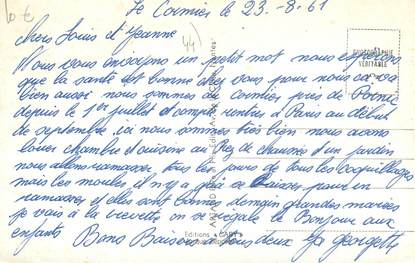 Le Cormier le 23-8-61
chers Louis et Jeanne
44
Nous vous envoyons un petit mot nous espérons
que la santé est bonne chez vous pour nous ca va
bien aussi nous sommes au cormier près de Pornic
depuis le 1er juillet et compte rentrer à Paris au début
de septembre, ici nous sommes très bien nous avons
louer chambre et cuisine au rez de chaussée d'un jardin
nous allons ramasser tous les jours de tous les coquillages
mais les moules il n'y a qu'a se baisser pour en
ramasser et elles sont bonnes demain grandes marées
je vais à la crevette on se régale le Bonjour aux
enfants Bons Baisers à tous deux Georgette
PHOTOGRAPHIE
VERITABLE
Editions